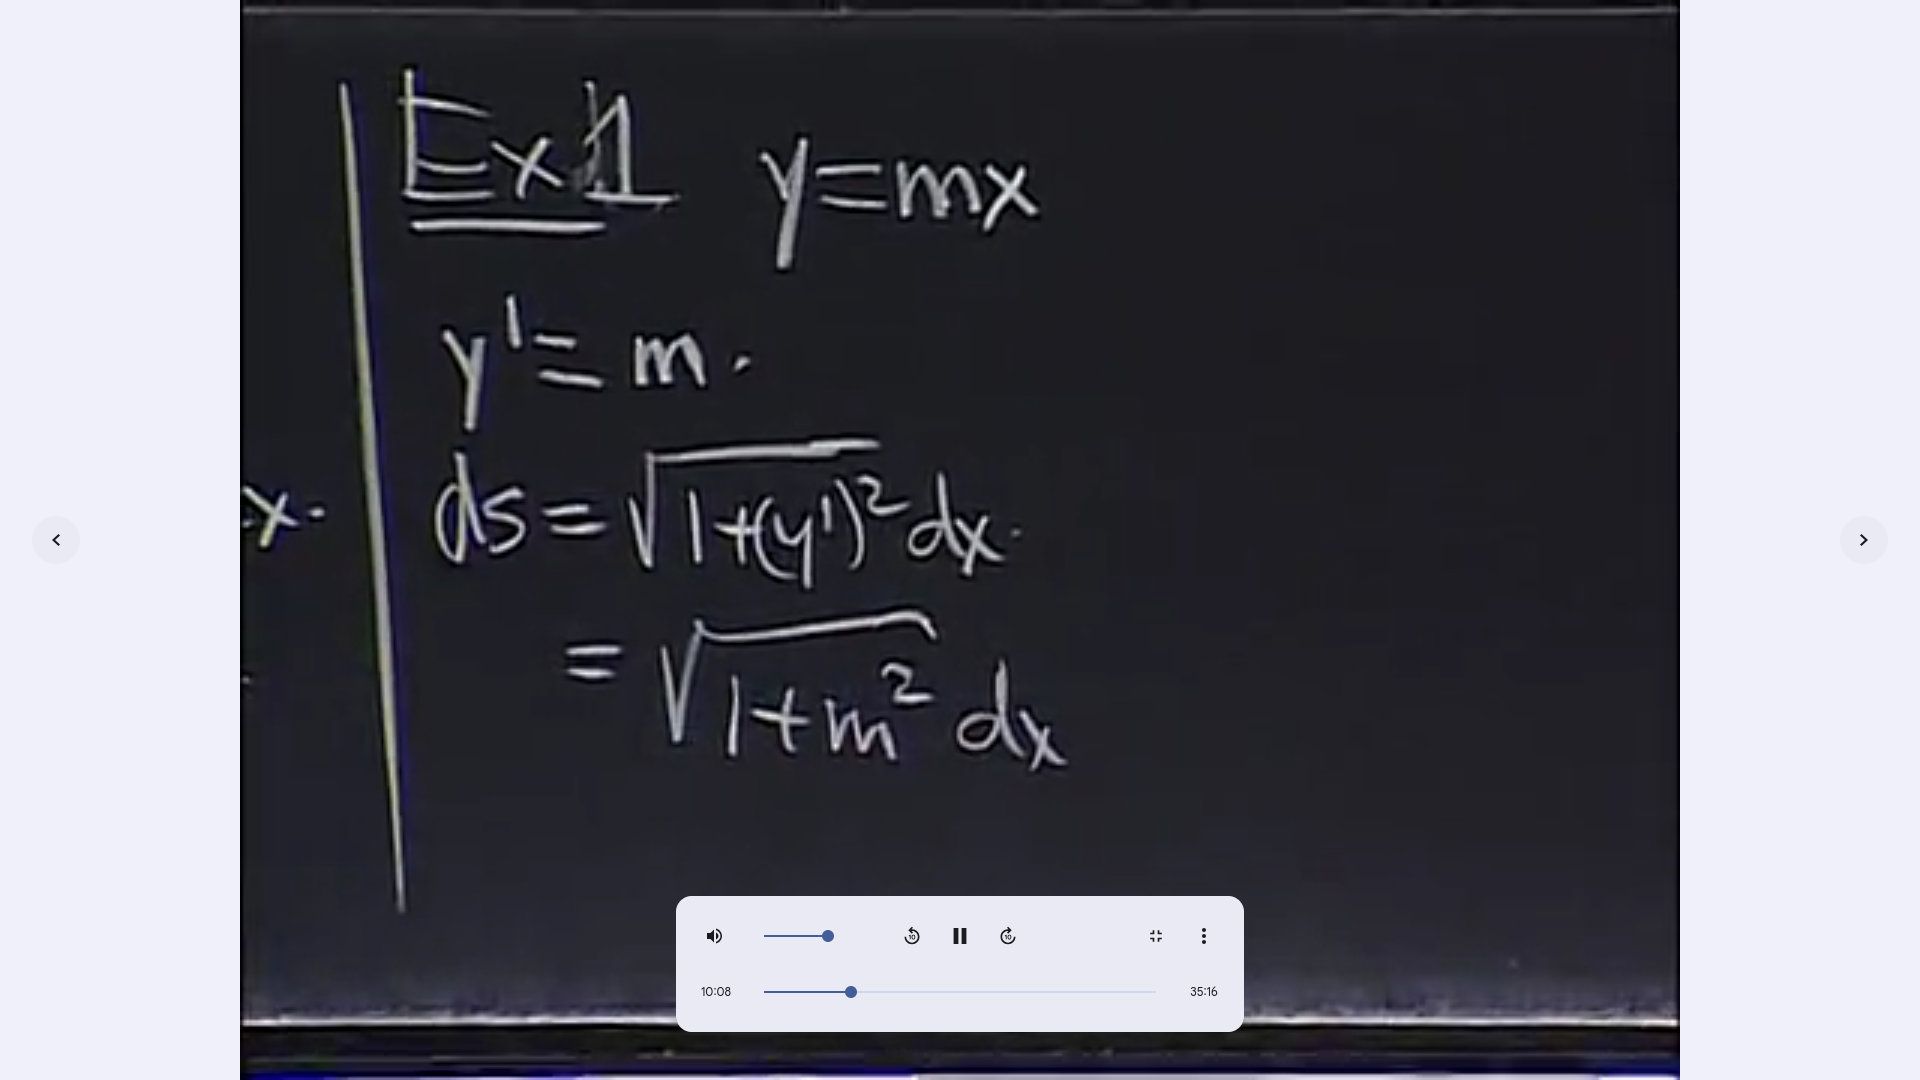 Ex 1 y=mx
y' = m.
ds = √1+(y')² dx.
x.
= √1+m² dx
10 10
10:08 35:16